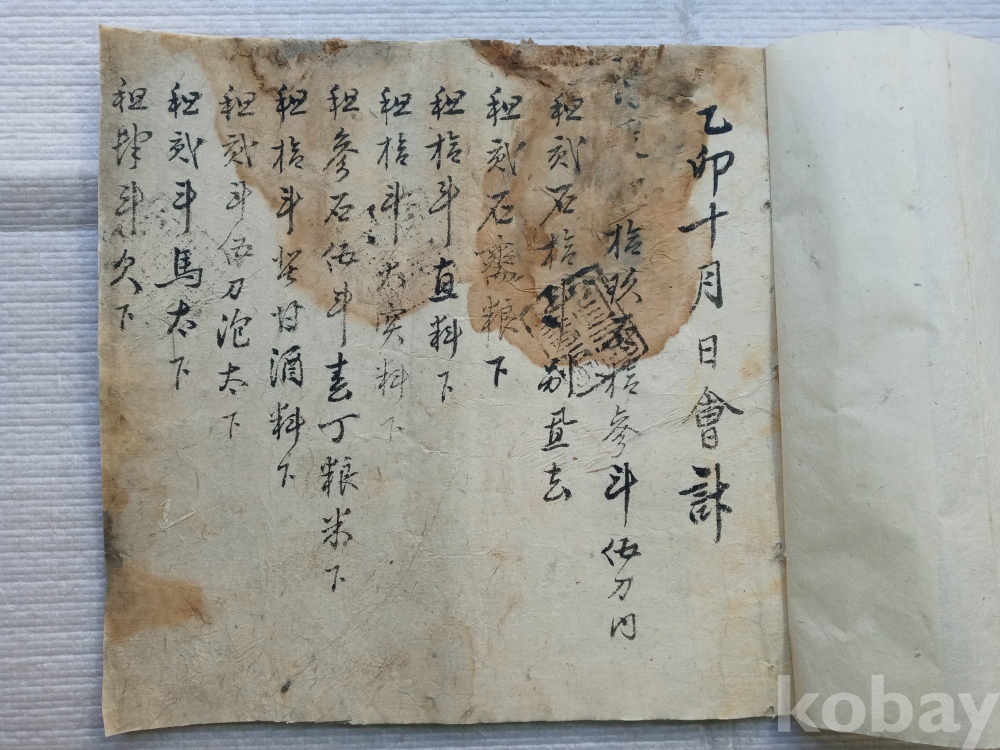 乙卯十月日會計
拾 拾參斗伍刀內
租貳石拾 斗 別 去
租貳石 粮下
租拾斗直料下
租拾斗大 料下
租參石伍斗 丁粮米下
租拾斗 甘酒料下
租貳斗伍刀泡太下
租貳斗馬太下
租肆斗欠下
kobay